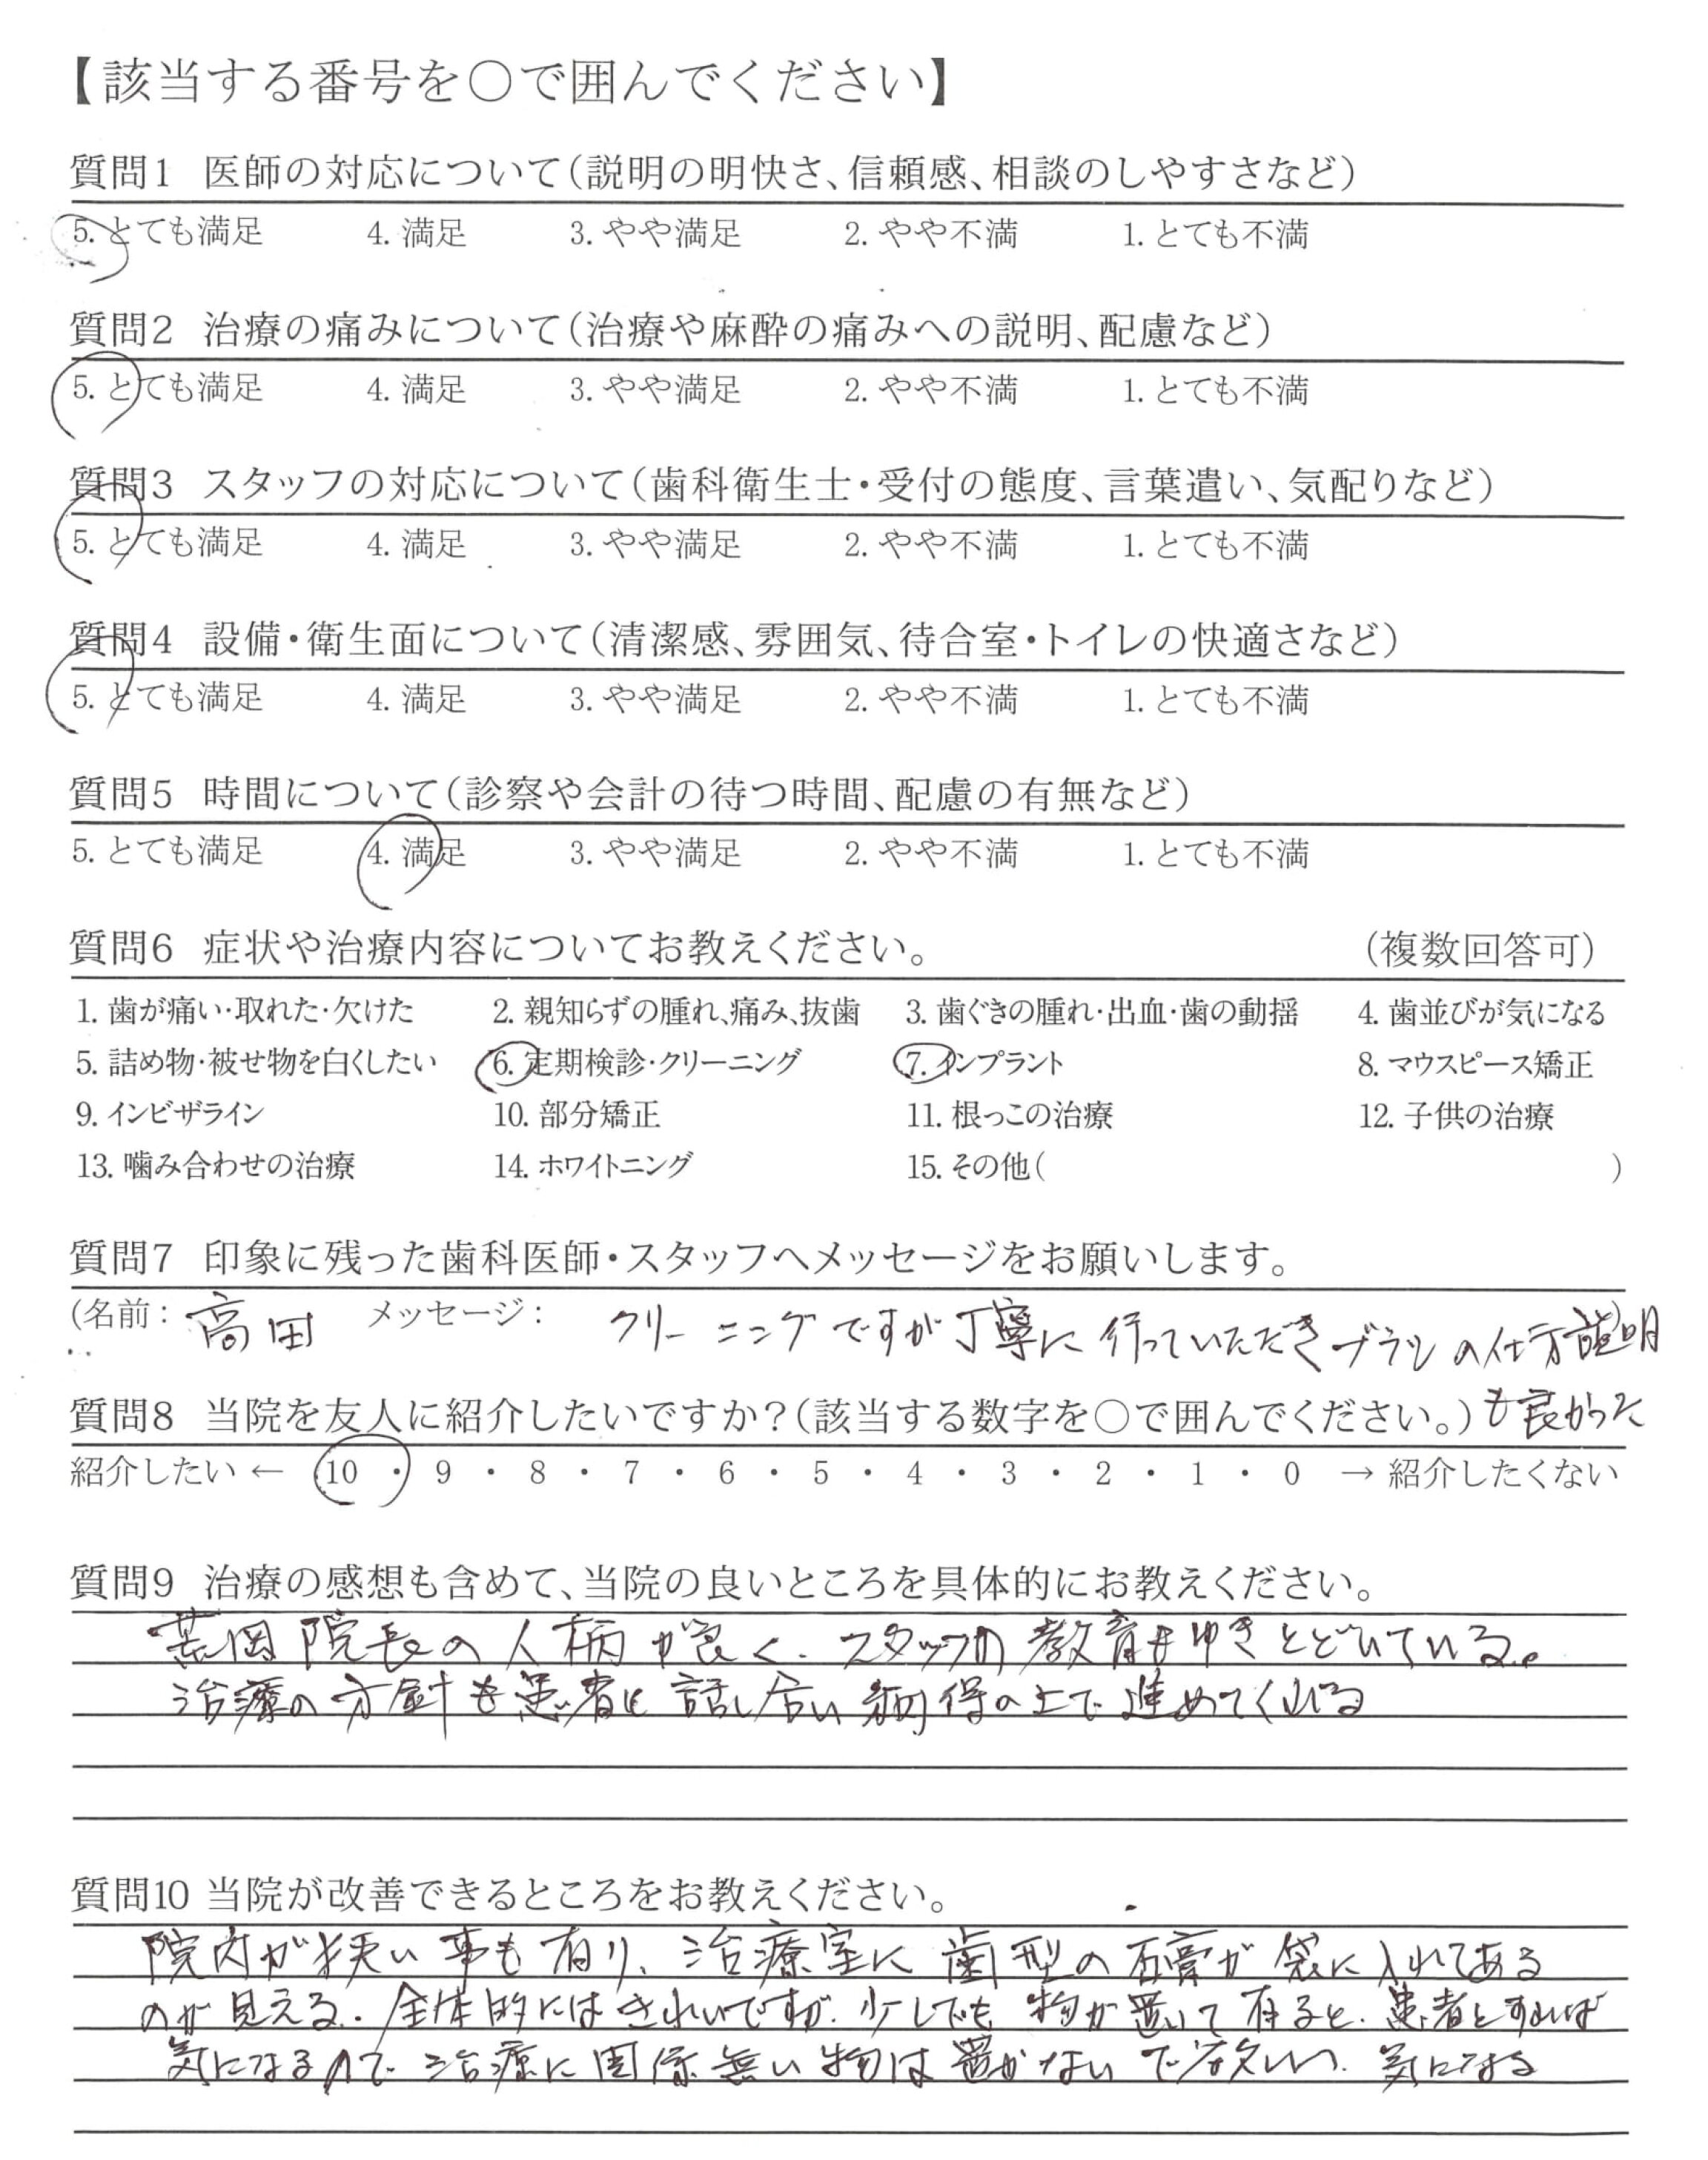 【該当する番号を○で囲んでください】
質問1 医師の対応について(説明の明快さ、信頼感、相談のしやすさなど)
5. とても満足 4. 満足 3. やや満足 2. やや不満 1. とても不満
質問2 治療の痛みについて(治療や麻酔の痛みへの説明、配慮など)
5. とても満足 4. 満足 3. やや満足 2. やや不満 1. とても不満
質問3 スタッフの対応について(歯科衛生士・受付の態度、言葉遣い、気配りなど)
5. とても満足 4. 満足 3. やや満足 2. やや不満 1. とても不満
質問4 設備・衛生面について(清潔感、雰囲気、待合室・トイレの快適さなど)
5. とても満足 4. 満足 3. やや満足 2. やや不満 1. とても不満
質問5 時間について(診察や会計の待つ時間、配慮の有無など)
5. とても満足 4. 満足 3. やや満足 2. やや不満 1. とても不満
質問6 症状や治療内容についてお教えください。 (複数回答可)
1. 歯が痛い・取れた・欠けた 2. 親知らずの腫れ、痛み、抜歯 3. 歯ぐきの腫れ・出血・歯の動揺 4. 歯並びが気になる
5. 詰め物・被せ物を白くしたい 6. 定期検診・クリーニング 7. インプラント 8. マウスピース矯正
9. インビザライン 10. 部分矯正 11. 根っこの治療 12. 子供の治療
13. 噛み合わせの治療 14. ホワイトニング 15. その他( )
質問7 印象に残った歯科医師・スタッフへメッセージをお願いします。
(名前: 高田 メッセージ: クリーニングですが丁寧に行っていただきブラシの仕方説明
も良かった
質問8 当院を友人に紹介したいですか?(該当する数字を○で囲んでください。)
紹介したい ← 10 ・ 9 ・ 8 ・ 7 ・ 6 ・ 5 ・ 4 ・ 3 ・ 2 ・ 1 ・ 0 → 紹介したくない
質問9 治療の感想も含めて、当院の良いところを具体的にお教えください。
院長の人柄が良く、スタッフの教育もゆきとどいている。
治療の方針も患者と話し合い納得の上で進めてくれる
質問10 当院が改善できるところをお教えください。
院内が狭い事も有り、治療室に歯型の石膏が袋に入れてある
のが見える。全体的にはきれいですが、少しでも物が置いて有ると、患者とすれば
気になるので治療に関係無い物は置かないで欲しい、気になる